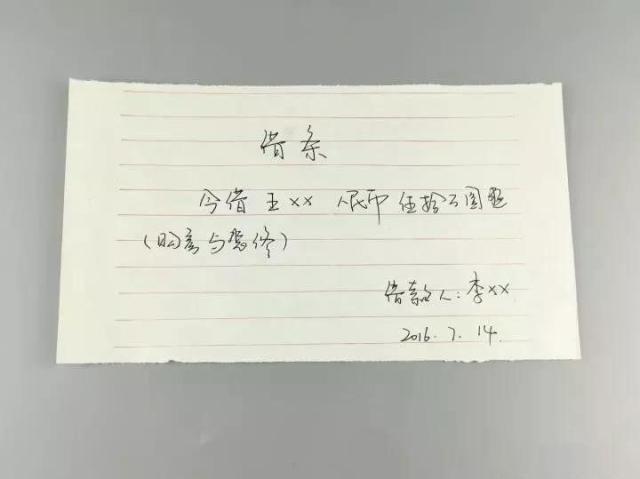 借条
今借王×× 人民币伍拾万圆整
借款人:李××
2016.7.14.